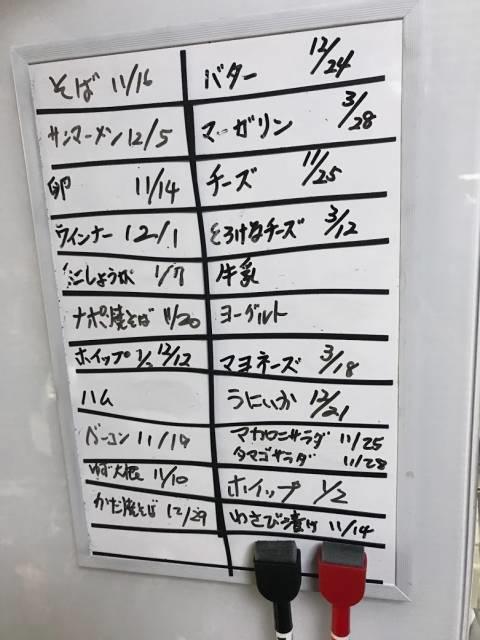 そば 11/16
サンマーメン 12/5
卵 11/14
ウインナー 12/1
紅しょうが 1/7
ナポ焼そば 11/20
ホイップ 1/2 12/12
ハム
ベーコン 11/19
ゆず大根 11/10
かた焼そば 12/29
バター 12/24
マーガリン 3/28
チーズ 11/25
とろけるチーズ 3/12
牛乳
ヨーグルト
マヨネーズ 3/18
うにいか 12/21
マカロニサラダ 11/25
タマゴサラダ 11/28
ホイップ 1/2
わさび漬け 11/14